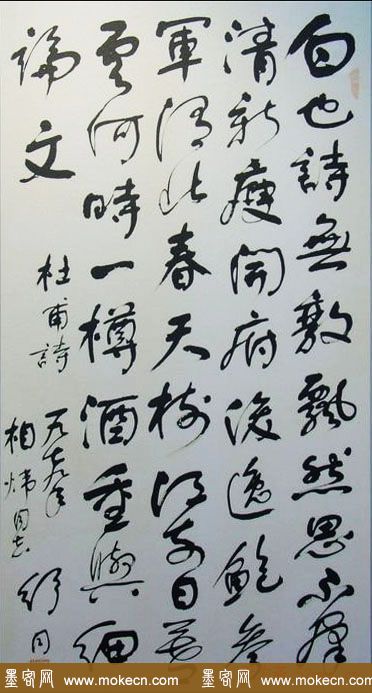 白也詩無敵飄然思不群
清新庾開府俊逸鮑參
軍渭北春天樹江東日暮
雲何時一樽酒重與細
論文
杜甫詩
同志
舒同
墨客网 www.mokecn.com 墨客网 www.mokecn.com